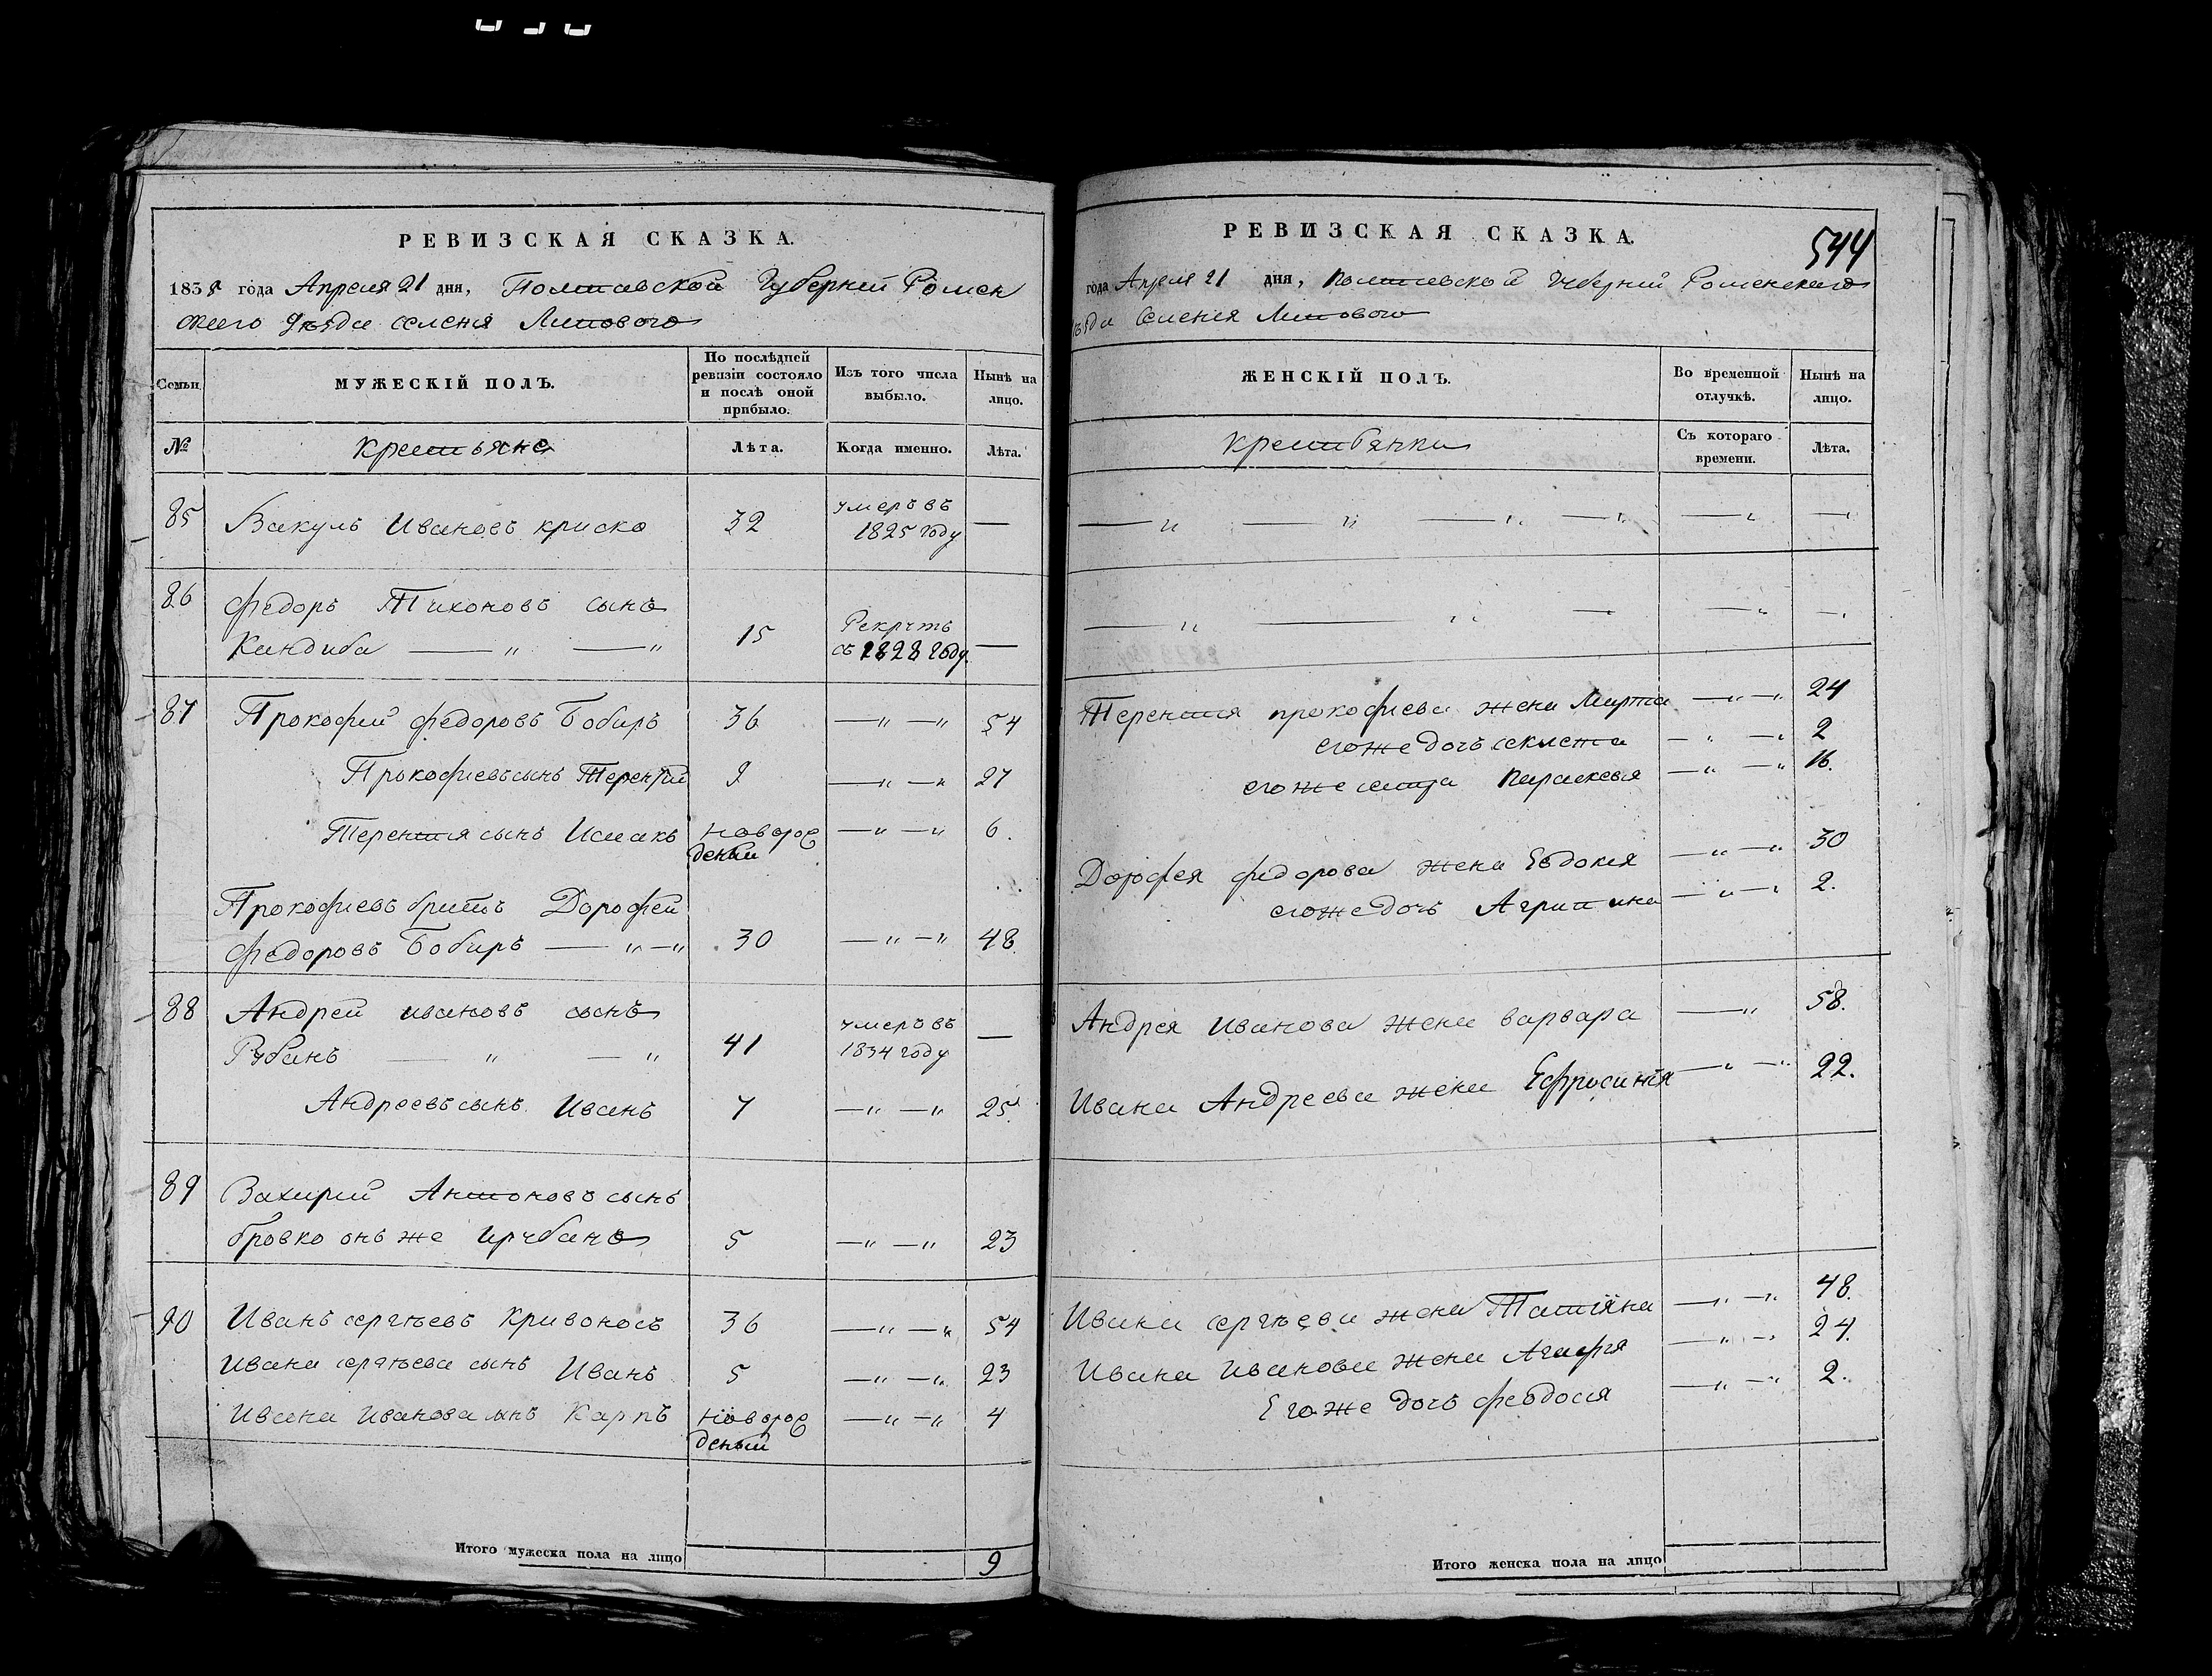 РЕВИЗСКАЯ СКАЗКА.
1835 года Апреля 21 дня, Полтавской Губернии Ромен
скаго уѣзда селенія Липового
Семьи
МУЖЕСКІЙ ПОЛЪ.
По послѣдней
ревизіи состояло
и послѣ оной
прибыло.
Изъ того числа
выбыло.
Нынѣ на
лицо.
№ крестьяне Лѣта. Когда именно. Лѣта.
85 Вакулъ Ивановъ криско 32 умеръ въ
1825 году —
86 Федоръ Тихоновъ сынъ
Кандиба — „ — „ 15 Рекрутъ
съ 1828 году. —
87 Прокофий федоровъ Бобиръ 36 — „ — „ 54
Прокофиевъ сынъ Терентій 9 — „ — „ 27
Терентія сынъ Исаакъ новорож
деный — „ — „ 6.
Прокофиевъ братъ Дорофей
федоровъ Бобиръ — „ — „ 30 — „ — „ 48.
88 Андрей ивановъ сынъ
Рубанъ — „ — „ 41 умеръ въ
1834 году —
Андреевъ сынъ Иванъ 7 — „ — „ 25.
89 Захарий Антоновъ сынъ
бровко онъ же 5 — „ — „ 23
90 Иванъ сергѣевъ Кривоносъ 36 — „ — „ 54
Ивана сергѣева сынъ Иванъ 5 — „ — „ 23
Ивана Иванова сынъ Карпъ новорож
деный — „ — „ 4
Итого мужеска пола на лицо 9
РЕВИЗСКАЯ СКАЗКА.
544
года Апреля 21 дня, Полтавской Губерній Роменскаго
ѣзда Селенія Липового
ЖЕНСКІЙ ПОЛЪ.
Во временной
отлучкѣ.
Нынѣ на
лицо.
крестьянки
Съ котораго
времени.
Лѣта.
— „ — „ — „ — „ — „ — „
— „ — „ — — „ — „
Терентія прокофиева жена Марта — „ — „ 24
егоже дочь — „ — „ 2
егоже сестра Параскевія — „ — „ 16.
Дорофея федорова жена Евдокія — „ — „ 30
егоже дочь Агрипина — „ — „ 2.
Андрея Иванова жена варвара — „ 58.
Ивана Андреева жена Ефросинія — „ — „ 22.
Ивана сергѣева жена Татіяна — „ — „ 48.
Ивана Иванова жена Агафія — „ — „ 24.
Егоже дочь феодосія — „ — „ 2.
Итого женска пола на лицо